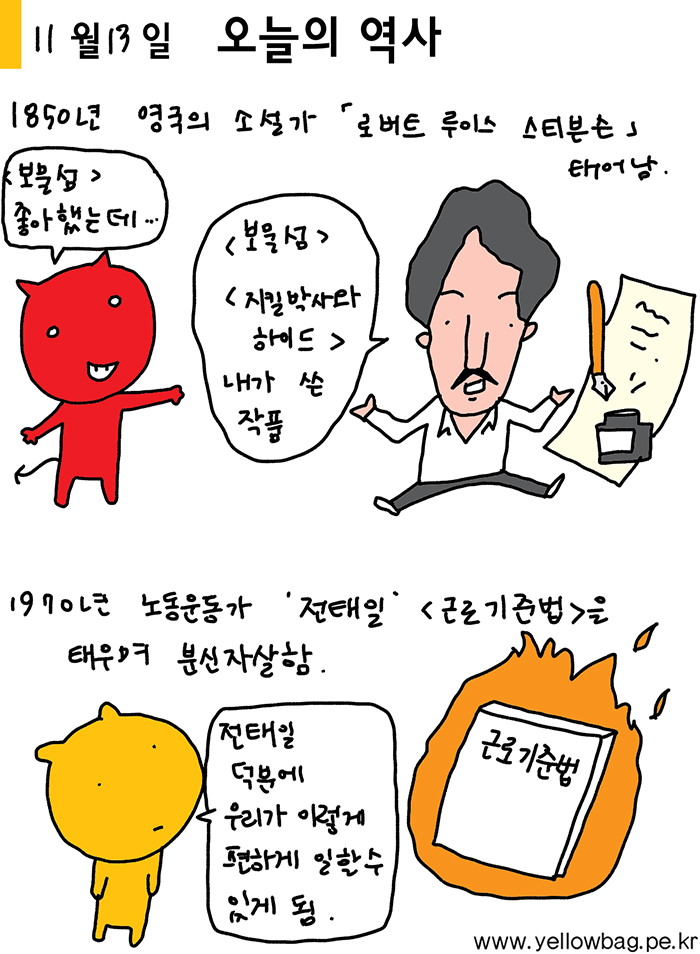 11월13일 오늘의 역사
1850년 영국의 소설가 「로버트 루이스 스티븐슨」
태어남.
<보물섬>
좋아했는데...
<보물섬>
<지킬박사와
하이드>
내가 쓴
작품
1970년 노동운동가 '전태일' <근로기준법>을
태우며 분신자살함.
전태일
덕분에
우리가 이렇게
편하게 일할수
있게 됨.
근로기준법
www.yellowbag.pe.kr